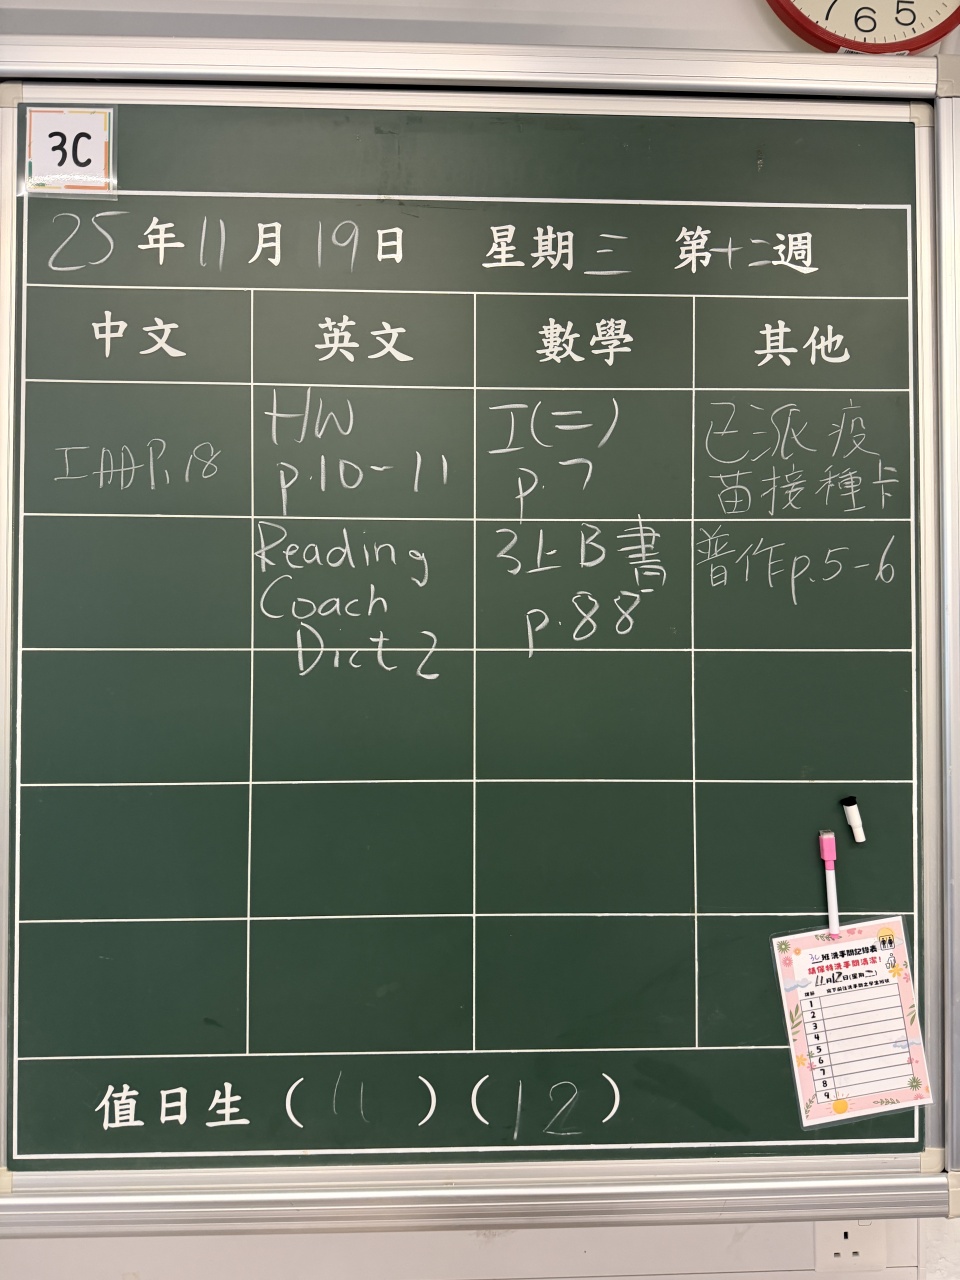 7 6 5
3C
25年11月19日 星期三 第十二週
中文 英文 數學 其他
P.18
HW
p.10-11
I(二)
p.7
已派疫
苗接種卡
Reading
Coach
Dict 2
3上B書
p.88
普作p.5-6
3C班洗手間記錄表
請保持洗手間清潔!
11月12日(星期二)
1
2
3
4
5
6
7
8
9
值日生(11)(12)